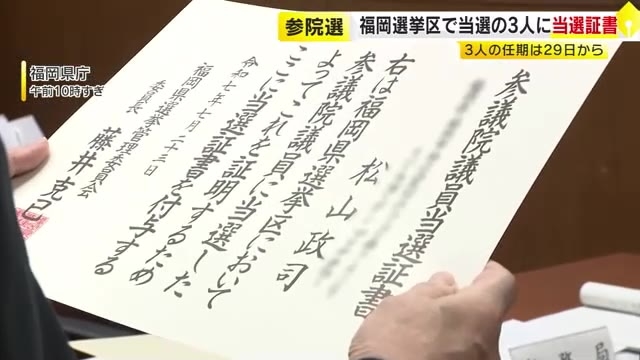 参院選
福岡選挙区で当選の3人に当選証書
3人の任期は29日から
福岡県庁
午前10時すぎ
参議院議員当選証書
松山政司
右は福岡県選挙区において
参議院議員に当選した
よってこれを証明するため
ここに当選証書を付与する
令和七年七月二十三日
福岡県選挙管理委員会
委員長
藤井克已
局